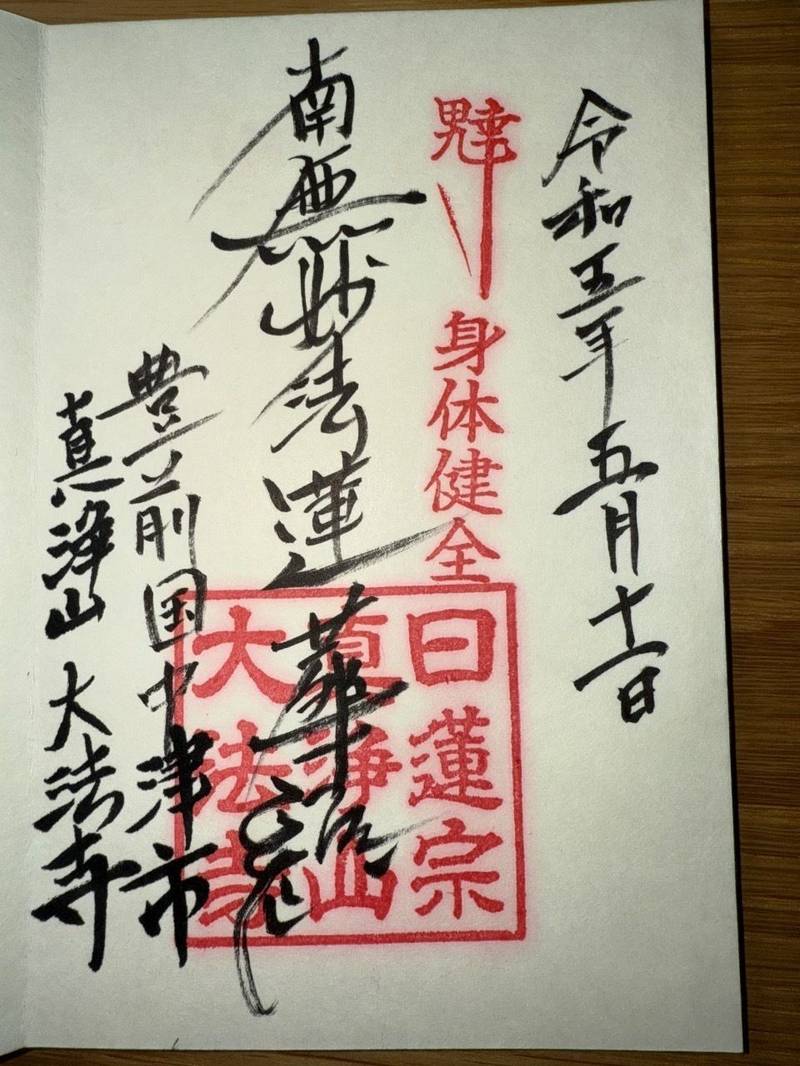 令和五年五月十一日
身体健全
日蓮宗
真浄山
大法寺
南無妙法蓮華経
豊前国中津市
真浄山 大法寺